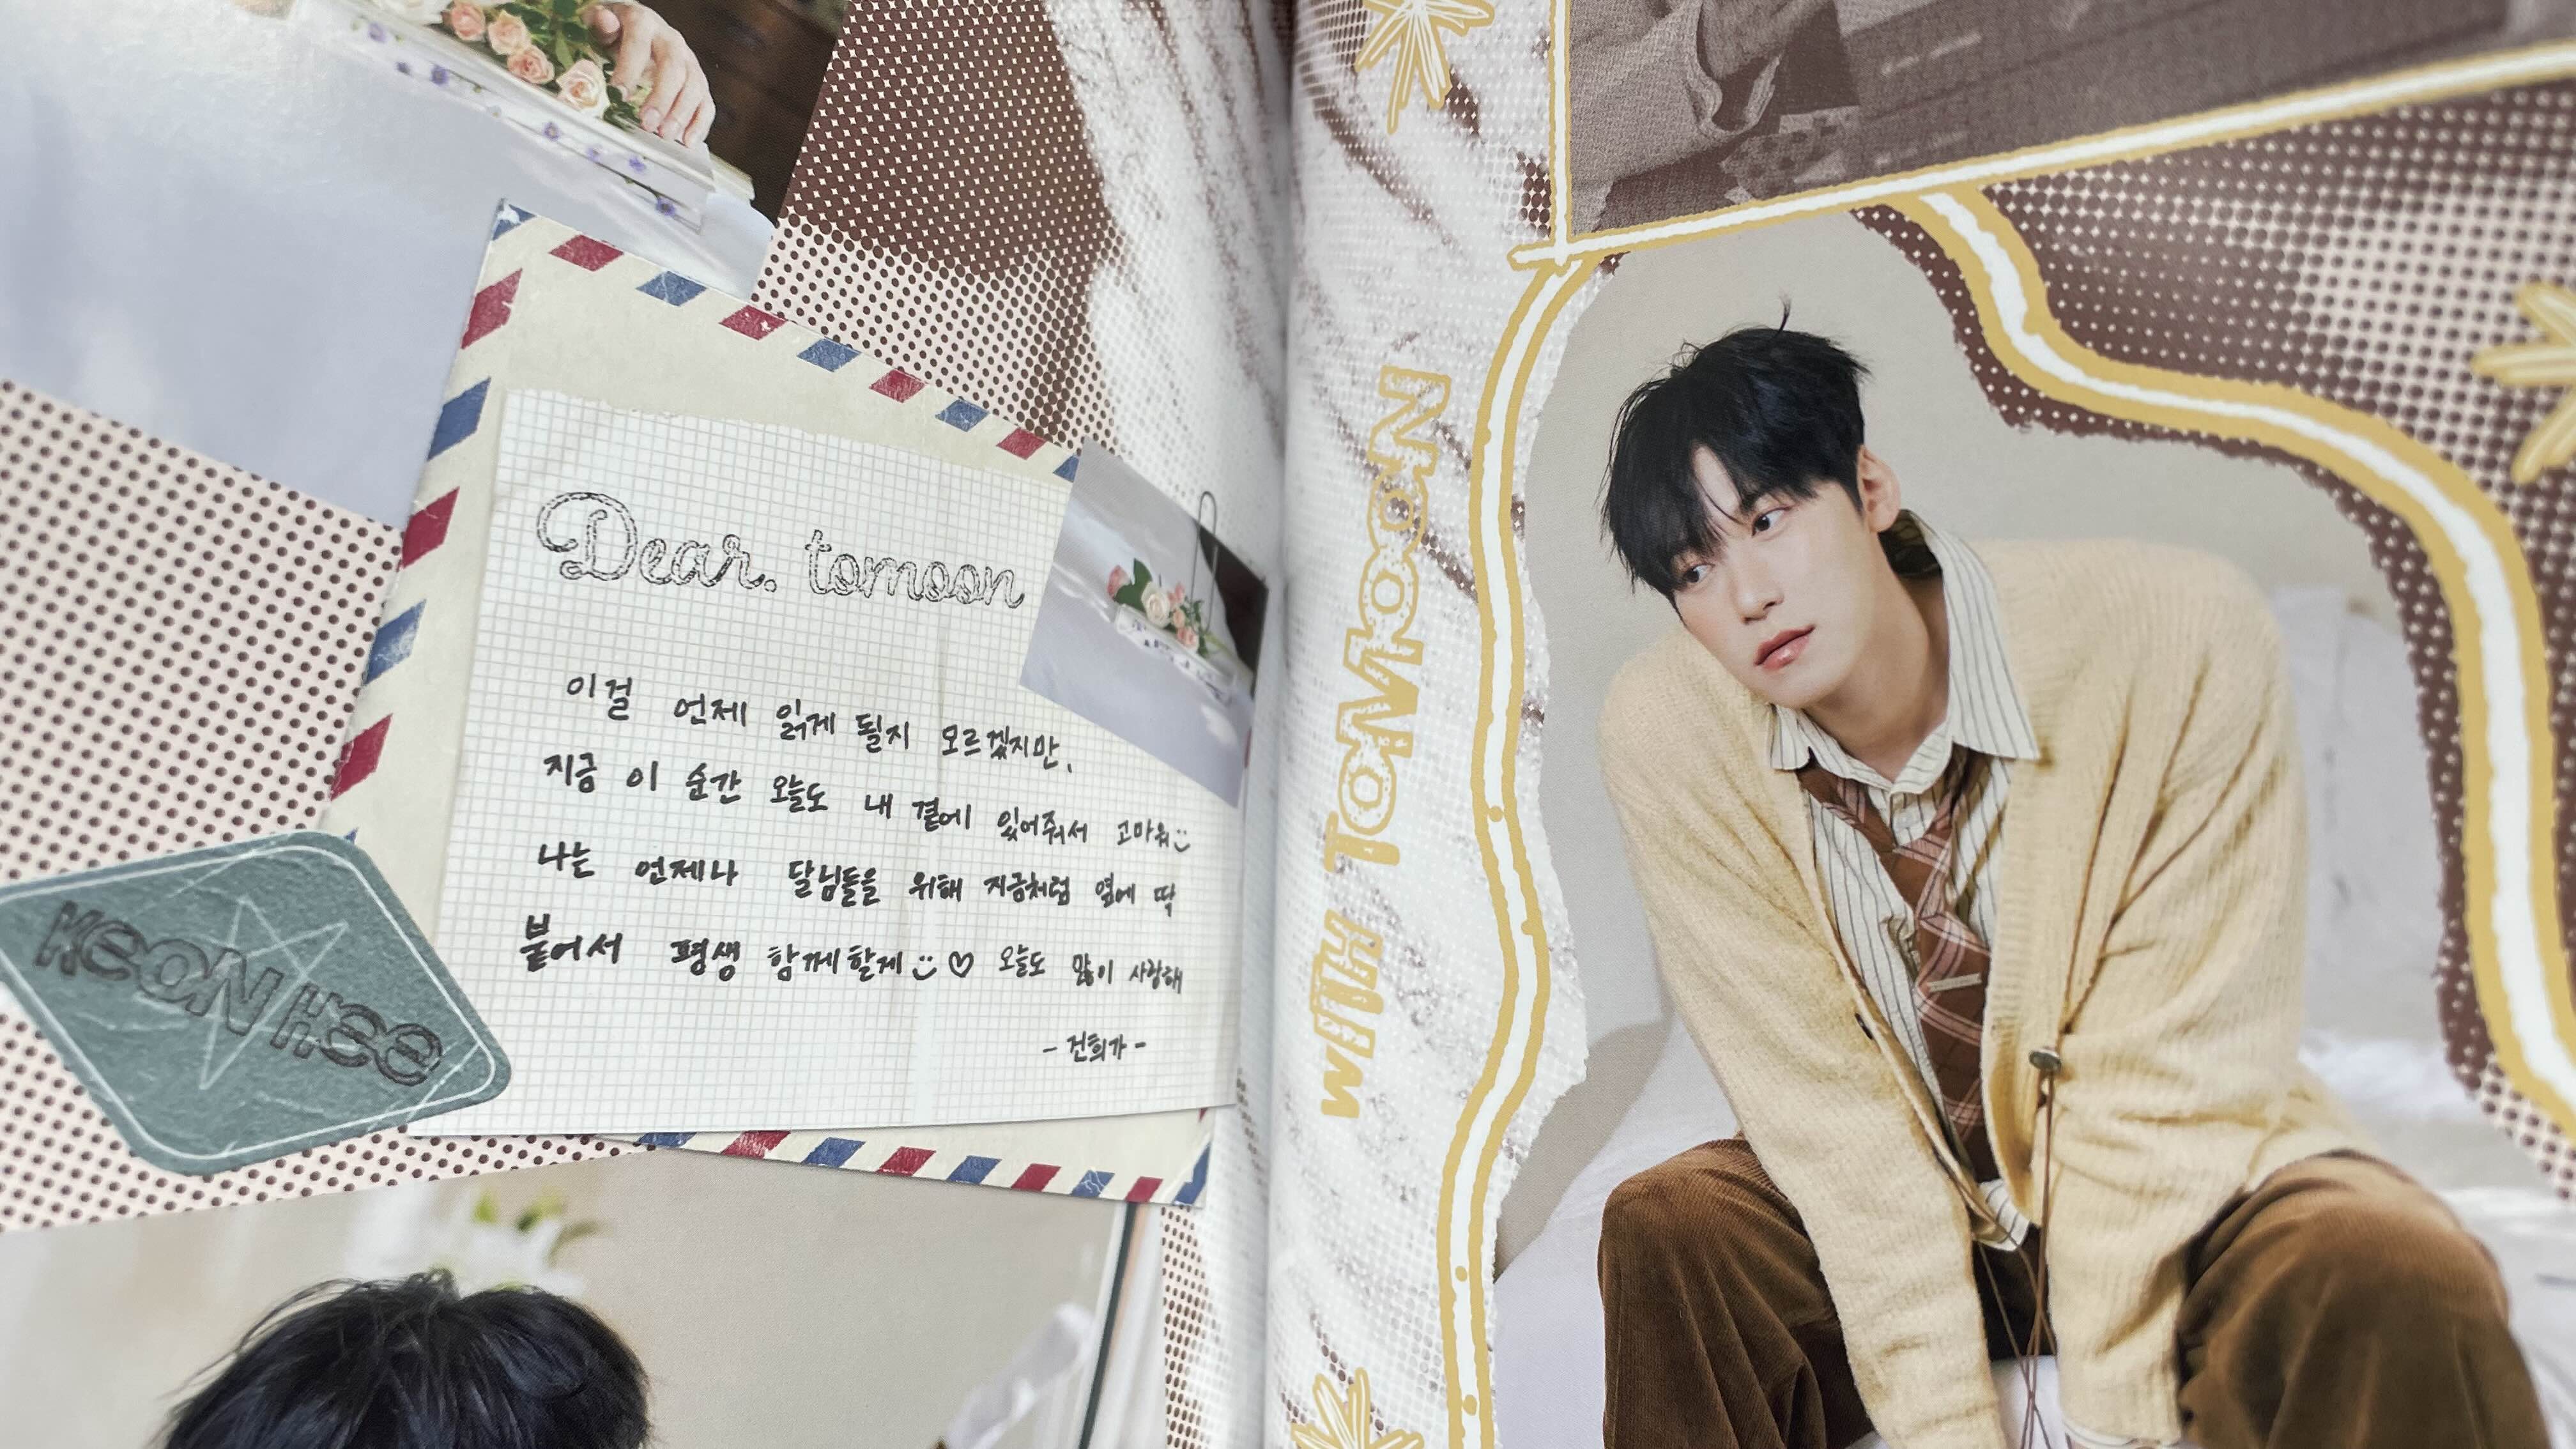 Dear. tomoon
이걸 언제 읽게 될지 모르겠지만,
지금 이 순간 오늘도 내 곁에 있어줘서 고마워:)
나는 언제나 달님들을 위해 지금처럼 옆에 딱
붙어서 평생 함께할게:)♡ 오늘도 많이 사랑해
- 건희가 -
KeoN Hee
wiTH ToMooN